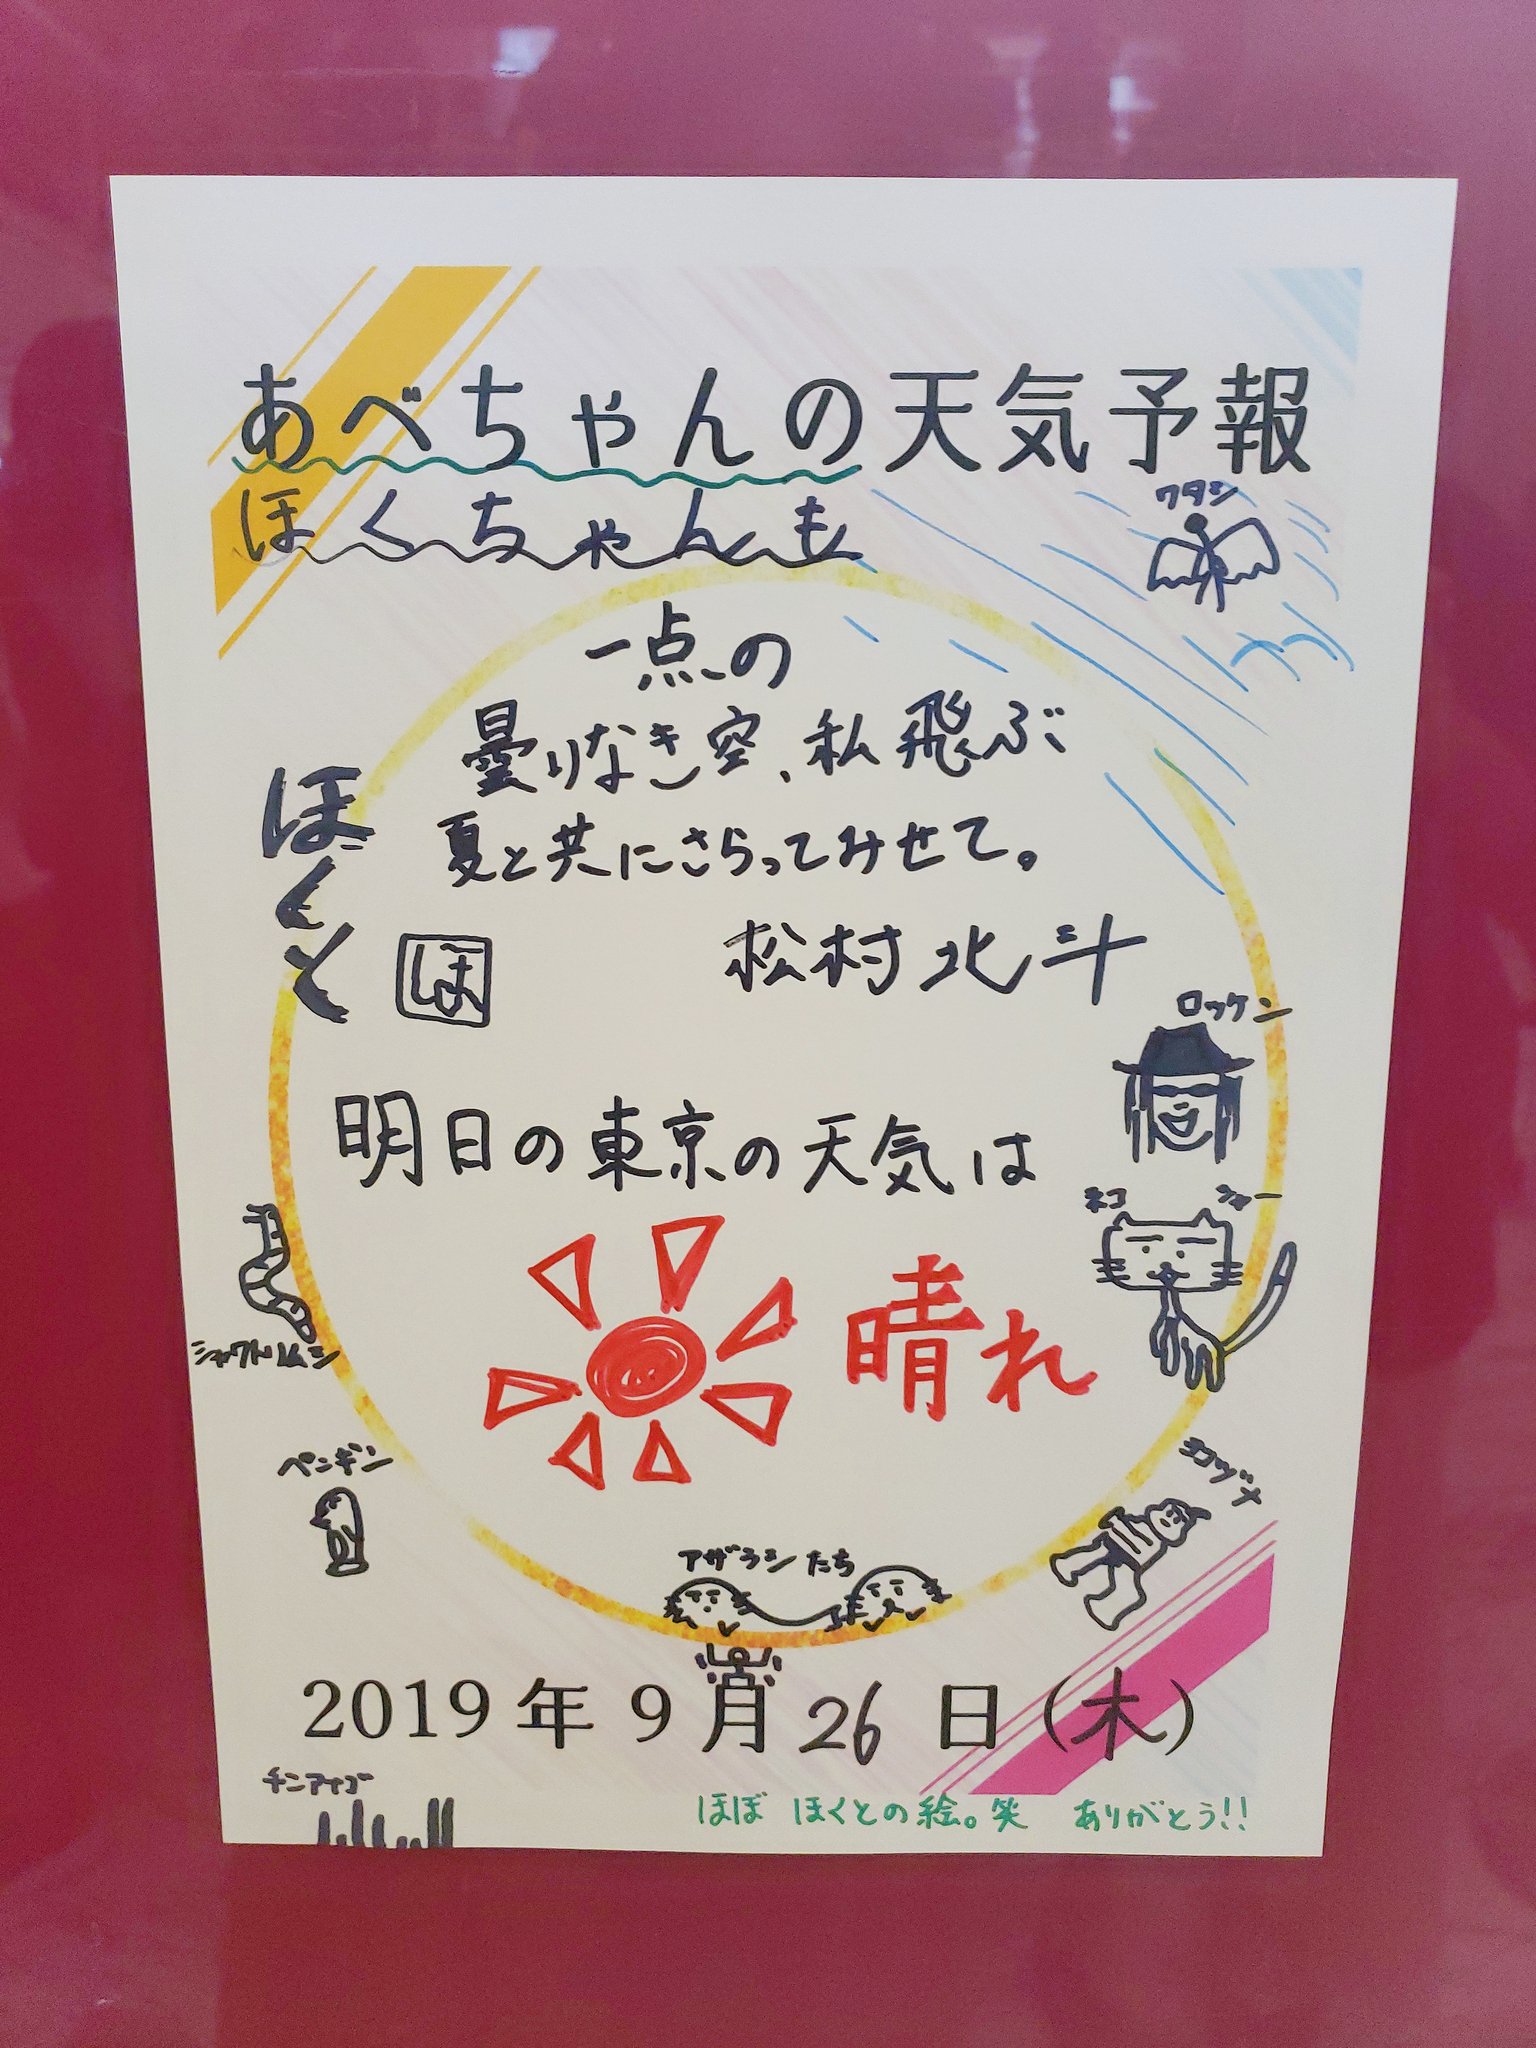 あべちゃんの天気予報
ほくちゃんも
ワタシ
一点の
曇りなき空、私飛ぶ
夏と共にさらってみせて。
ほくと
ほ
松村北斗
ロッケン
明日の東京の天気は
ネコ
晴れ
ペンギン
アザラシたち
2019年9月26日(木)
ほぼ ほくとの絵。笑 ありがとう!!